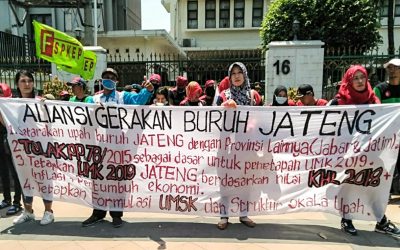 FSPKEP
16
ALIANSI GERAKAN BURUH JATENG
1. Setarakan upah buruh JATENG dengan Provinsi Lainnya (Jabar & Jatim).
2. TOLAK PP.78/2015 sebagai dasar untuk penetapan UMK 2019.
3. Tetapkan UMK 2019 JATENG berdasarkan nilai KHL 2018 +
Inflasi + Pertumbuh ekonomi.
4. Tetapkan Formulasi UMSK dan Struktur Skala Upah.